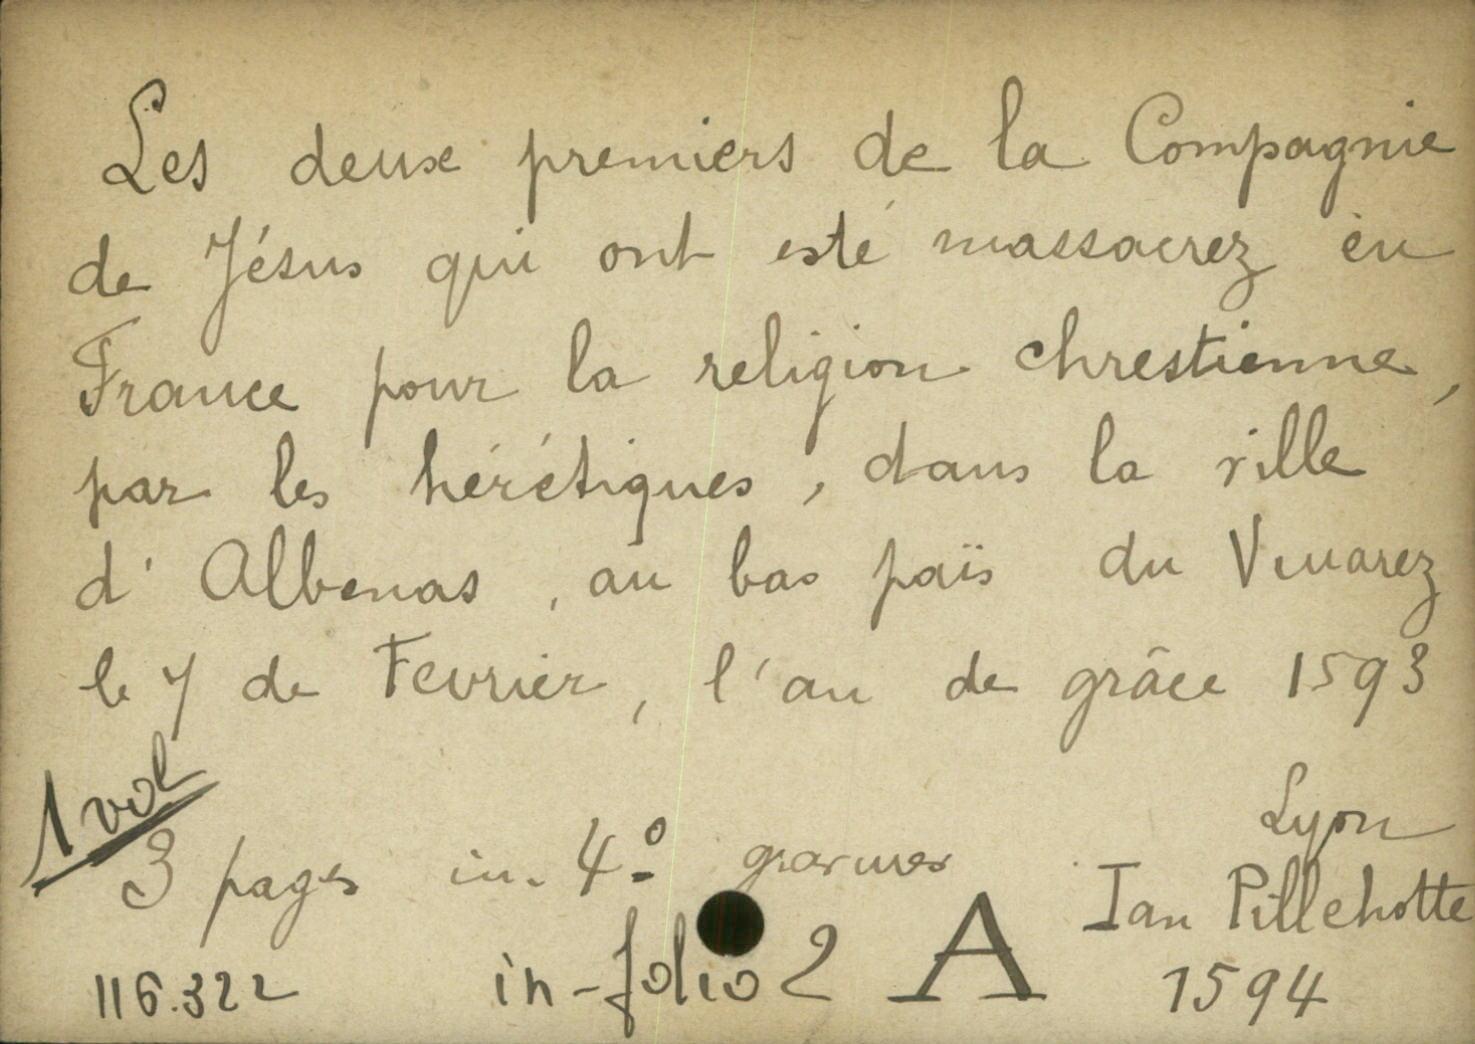 Les deux premiers de la Compagnie
de Jésus qui ont esté massacrez en
France pour la religion chrestienne,
par les hérétiques, dans la ville
d'Albenas, au bas païs du Vivarez
le 7 de Fevrier, l'an de grâce 1593
1 vol
3 pages in-4º gravures
Lyon
Ian Pillehotte
1594
116.322 in-folio 2 A